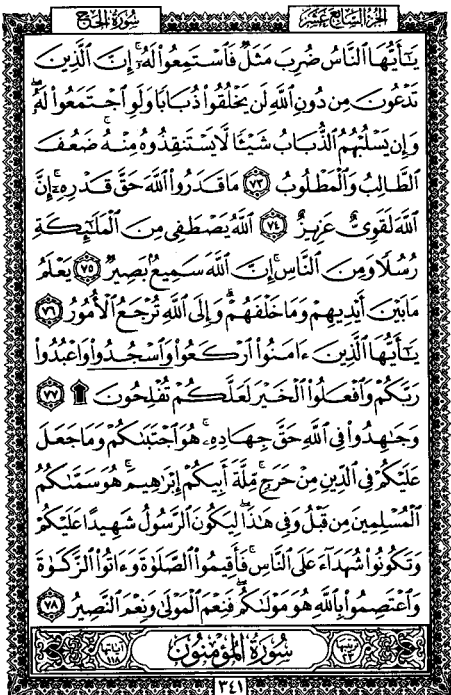 الجزء السابع عشر سورة الحج
يَٰٓأَيُّهَا ٱلنَّاسُ ضُرِبَ مَثَلٌ فَٱسْتَمِعُوا۟ لَهُۥٓ ۚ إِنَّ ٱلَّذِينَ
تَدْعُونَ مِن دُونِ ٱللَّهِ لَن يَخْلُقُوا۟ ذُبَابًا وَلَوِ ٱجْتَمَعُوا۟ لَهُۥ ۖ
وَإِن يَسْلُبْهُمُ ٱلذُّبَابُ شَيْـًٔا لَّا يَسْتَنقِذُوهُ مِنْهُ ۚ ضَعُفَ
ٱلطَّالِبُ وَٱلْمَطْلُوبُ ٧٣ مَا قَدَرُوا۟ ٱللَّهَ حَقَّ قَدْرِهِۦٓ ۗ إِنَّ
ٱللَّهَ لَقَوِىٌّ عَزِيزٌ ٧٤ ٱللَّهُ يَصْطَفِى مِنَ ٱلْمَلَٰٓئِكَةِ
رُسُلًا وَمِنَ ٱلنَّاسِ ۚ إِنَّ ٱللَّهَ سَمِيعٌۢ بَصِيرٌ ٧٥ يَعْلَمُ
مَا بَيْنَ أَيْدِيهِمْ وَمَا خَلْفَهُمْ ۗ وَإِلَى ٱللَّهِ تُرْجَعُ ٱلْأُمُورُ ٧٦
يَٰٓأَيُّهَا ٱلَّذِينَ ءَامَنُوا۟ ٱرْكَعُوا۟ وَٱسْجُدُوا۟ وَٱعْبُدُوا۟
رَبَّكُمْ وَٱفْعَلُوا۟ ٱلْخَيْرَ لَعَلَّكُمْ تُفْلِحُونَ ۩ ٧٧
وَجَٰهِدُوا۟ فِى ٱللَّهِ حَقَّ جِهَادِهِۦ ۚ هُوَ ٱجْتَبَىٰكُمْ وَمَا جَعَلَ
عَلَيْكُمْ فِى ٱلدِّينِ مِنْ حَرَجٍ ۚ مِّلَّةَ أَبِيكُمْ إِبْرَٰهِيمَ ۚ هُوَ سَمَّىٰكُمُ
ٱلْمُسْلِمِينَ مِن قَبْلُ وَفِى هَٰذَا لِيَكُونَ ٱلرَّسُولُ شَهِيدًا عَلَيْكُمْ
وَتَكُونُوا۟ شُهَدَآءَ عَلَى ٱلنَّاسِ ۚ فَأَقِيمُوا۟ ٱلصَّلَوٰةَ وَءَاتُوا۟ ٱلزَّكَوٰةَ
وَٱعْتَصِمُوا۟ بِٱللَّهِ هُوَ مَوْلَىٰكُمْ ۖ فَنِعْمَ ٱلْمَوْلَىٰ وَنِعْمَ ٱلنَّصِيرُ ٧٨
ترتيبها ٢٣ سورة المؤمنون آياتها ١١٨
٣٤١